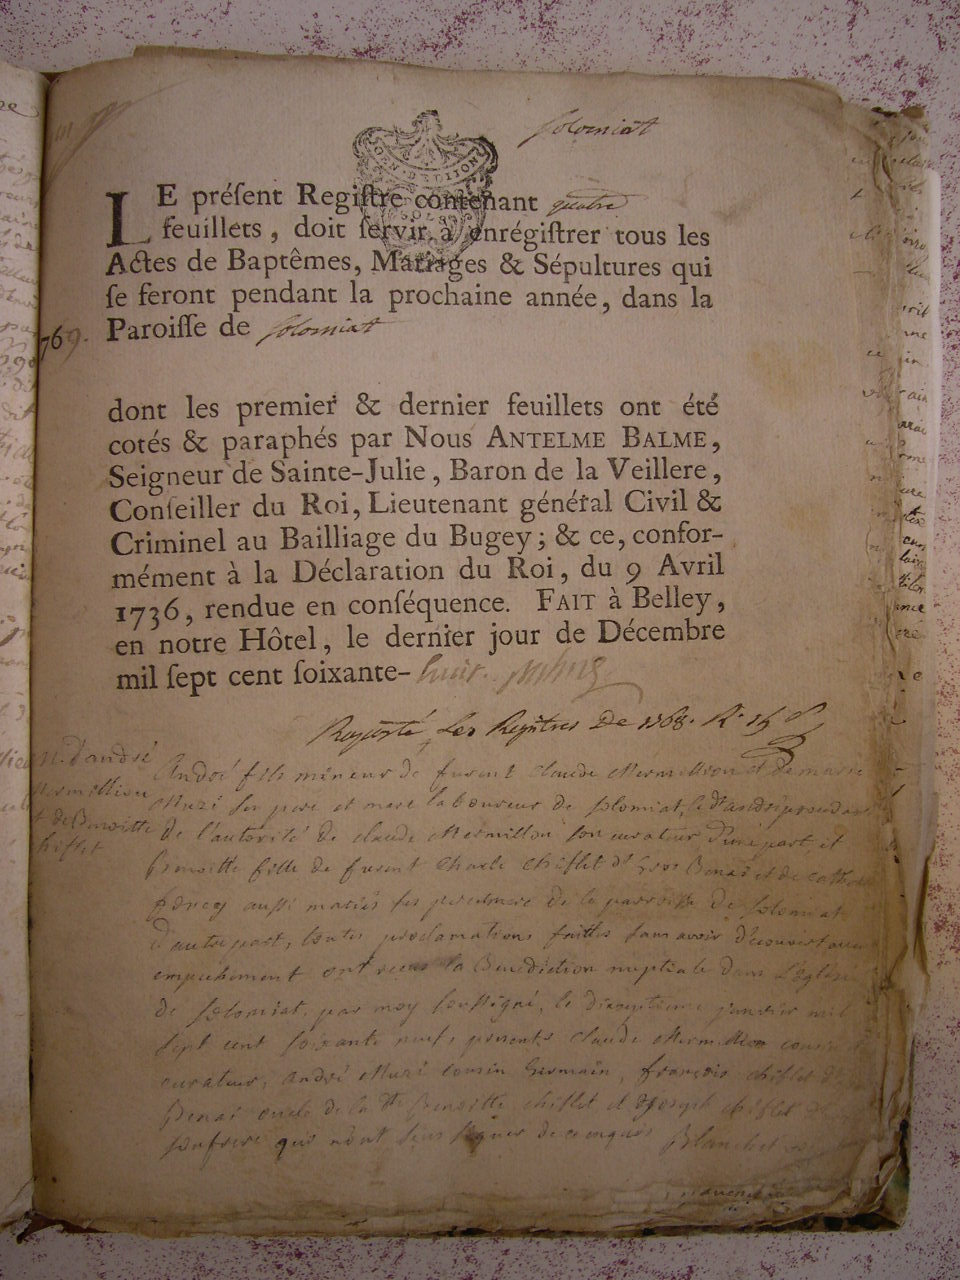 Solomiat
GEN. DE DIJON
LE préſent Regiſtre contenant quatre
feuillets, doit ſervir à enrégiſtrer tous les
Actes de Baptêmes, Mariages & Sépultures qui
ſe feront pendant la prochaine année, dans la
Paroiſſe de Solomiat
769.
dont les premier & dernier feuillets ont été
cotés & paraphés par Nous ANTELME BALME,
Seigneur de Sainte-Julie, Baron de la Veillere,
Conſeiller du Roi, Lieutenant général Civil &
Criminel au Bailliage du Bugey; & ce, confor-
mément à la Déclaration du Roi, du 9 Avril
1736, rendue en conſéquence. FAIT à Belley,
en notre Hôtel, le dernier jour de Décembre
mil ſept cent ſoixante-huit.
Les Regitres De 1768.
m. d'andré
mermillion
et de Benoitte
chiflet
André fils mineur de furent claude Mermillion et de marie
Muzi ses pere et mere laboureur de solomiat, le dt andré
De l'autorité de claude Mermillon son curateur d'une part, et
Benoitte fille de furent Charle Chiflet de Gros Benai et de
aussi mariés ses pere et mere de la parroisse de solomiat
D'autre part, toutes proclamations faittes sans avoir découvert aucun
empechement ont reçus la Benediction nuptiale dans L'eglise
de solomiat, par moy soussigné, le janvier mil
sept cent soixante neuf, presents claude Mermillion
curateur, André Muzi cousin Germain, françois chiflet
Benai oncle de la dte Benoitte chiflet et Joseph chiflet
son frere qui n'ont sceus signer de ce enquis Blanchet